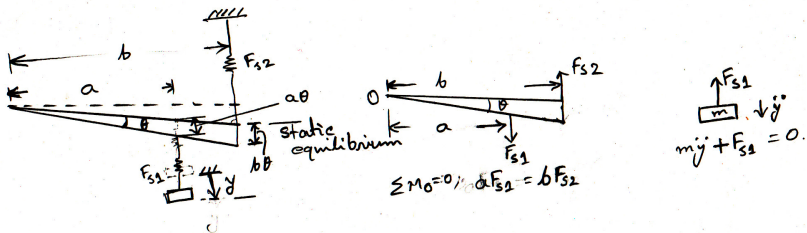 b
F_{s2}
a
aθ
θ
static
equilibrium
bθ
F_{s1}
y
b
F_{s2}
O
θ
a
F_{s1}
ΣM_O=0; aF_{s1} = bF_{s2}
F_{s1}
m
ÿ
mÿ + F_{s1} = 0.